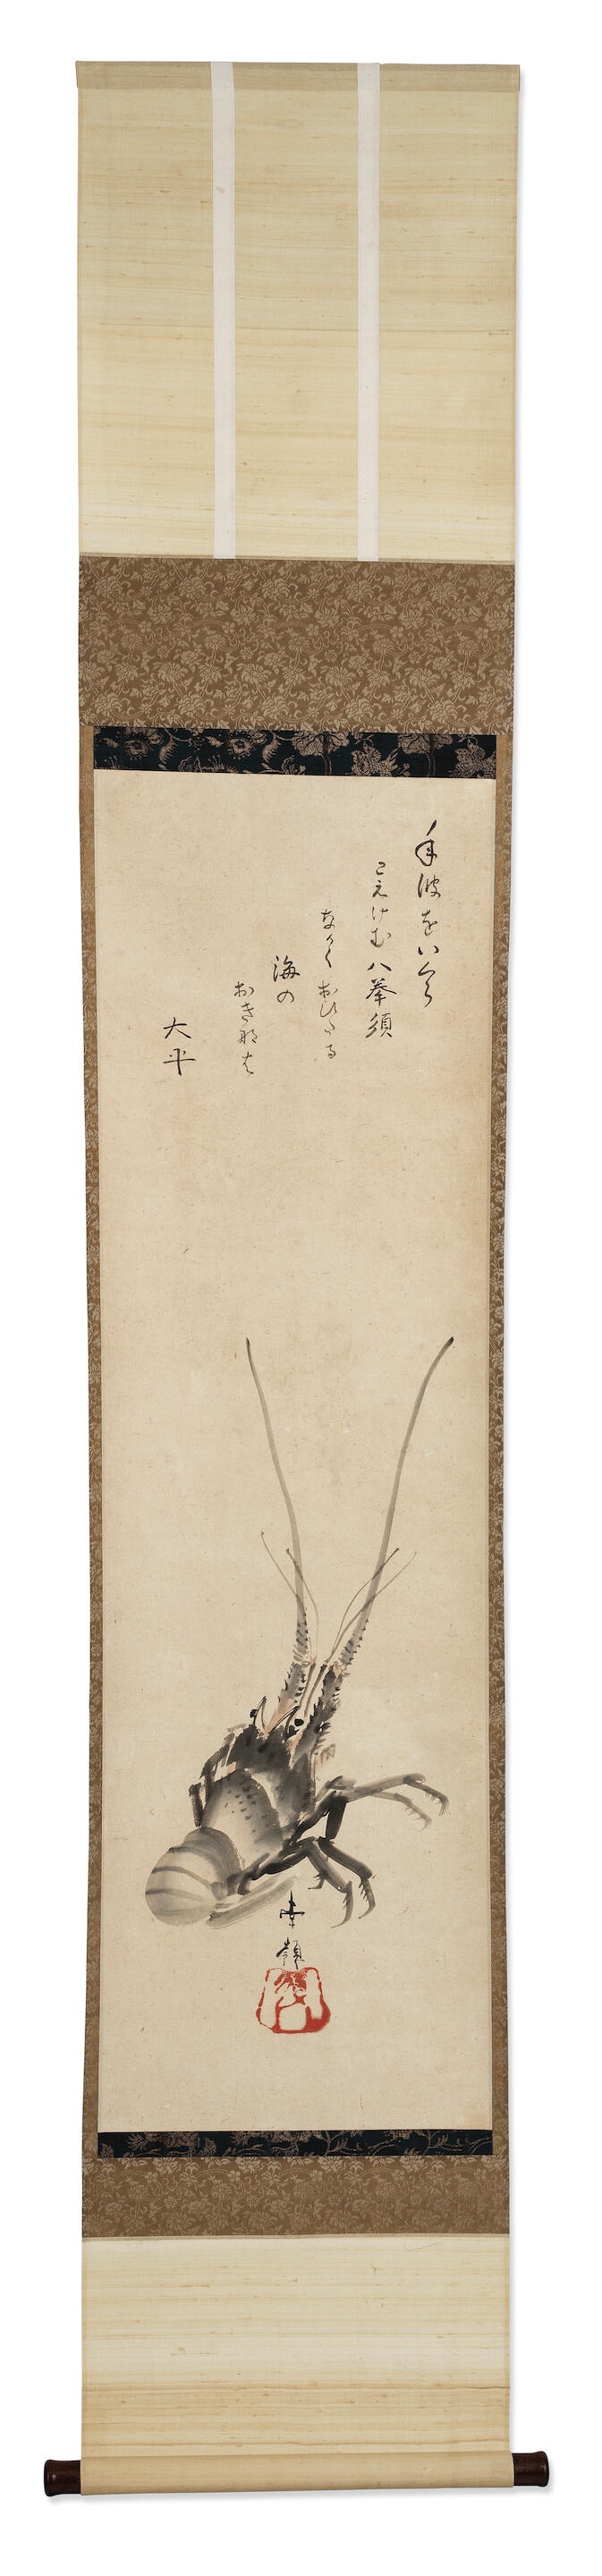 年波をいくら
こえけむ八拳須
なかくおひたる
海の
おき那は
大平